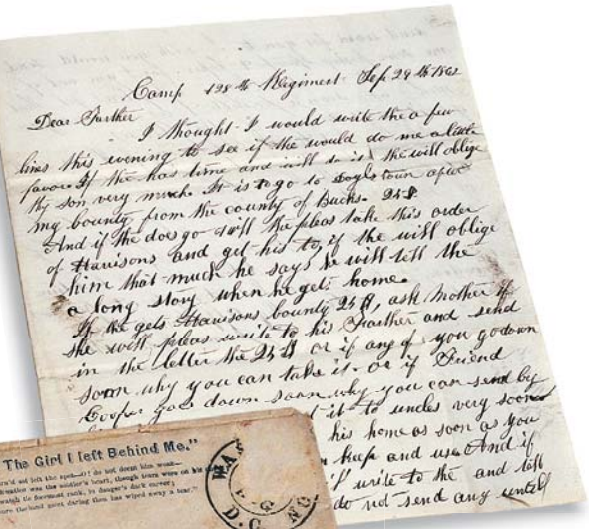 Camp 128th Regiment Sep 29th 1862
Dear Farther
I thought I would write the a few
lines this evening to see if the would do me a little
favor If the has time and will do it the will oblige
thy son very much. It is to go to Doylestown after
my bounty from the county of Bucks. 25$
And if the does go will the pleas take this order
of Harrisons and get his to, if the will oblige
him that much he says he will tell the
a long story when he gets home.
If the gets Harrisons bounty 25$, ask Mother if
she will pleas write to his Farther and send
in the letter the 25$ or if any of you go down
soon why you can take it. or if Friend
Cooper goes down soon why you can send by
it to uncles very soon
his home as soon as you
keep and use And if
write to the and tell
do not send any until
"The Girl I left Behind Me."
the foremost rank, in danger's dark career,
sure the hand most daring then has wiped away a tear."
WAS
D.C.
NO